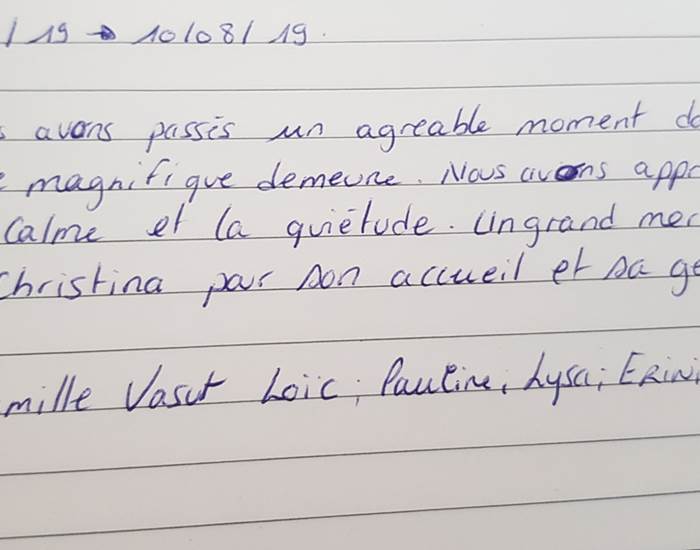 / 19 → 10/08/ 19.
s avons passés un agreable moment da
e magnifique demeure. Nous avons appr
calme et la quiétude. Un grand mer
Christina par son accueil et sa ge
mille Vasut Loïc; Pauline, Lysa; Erin